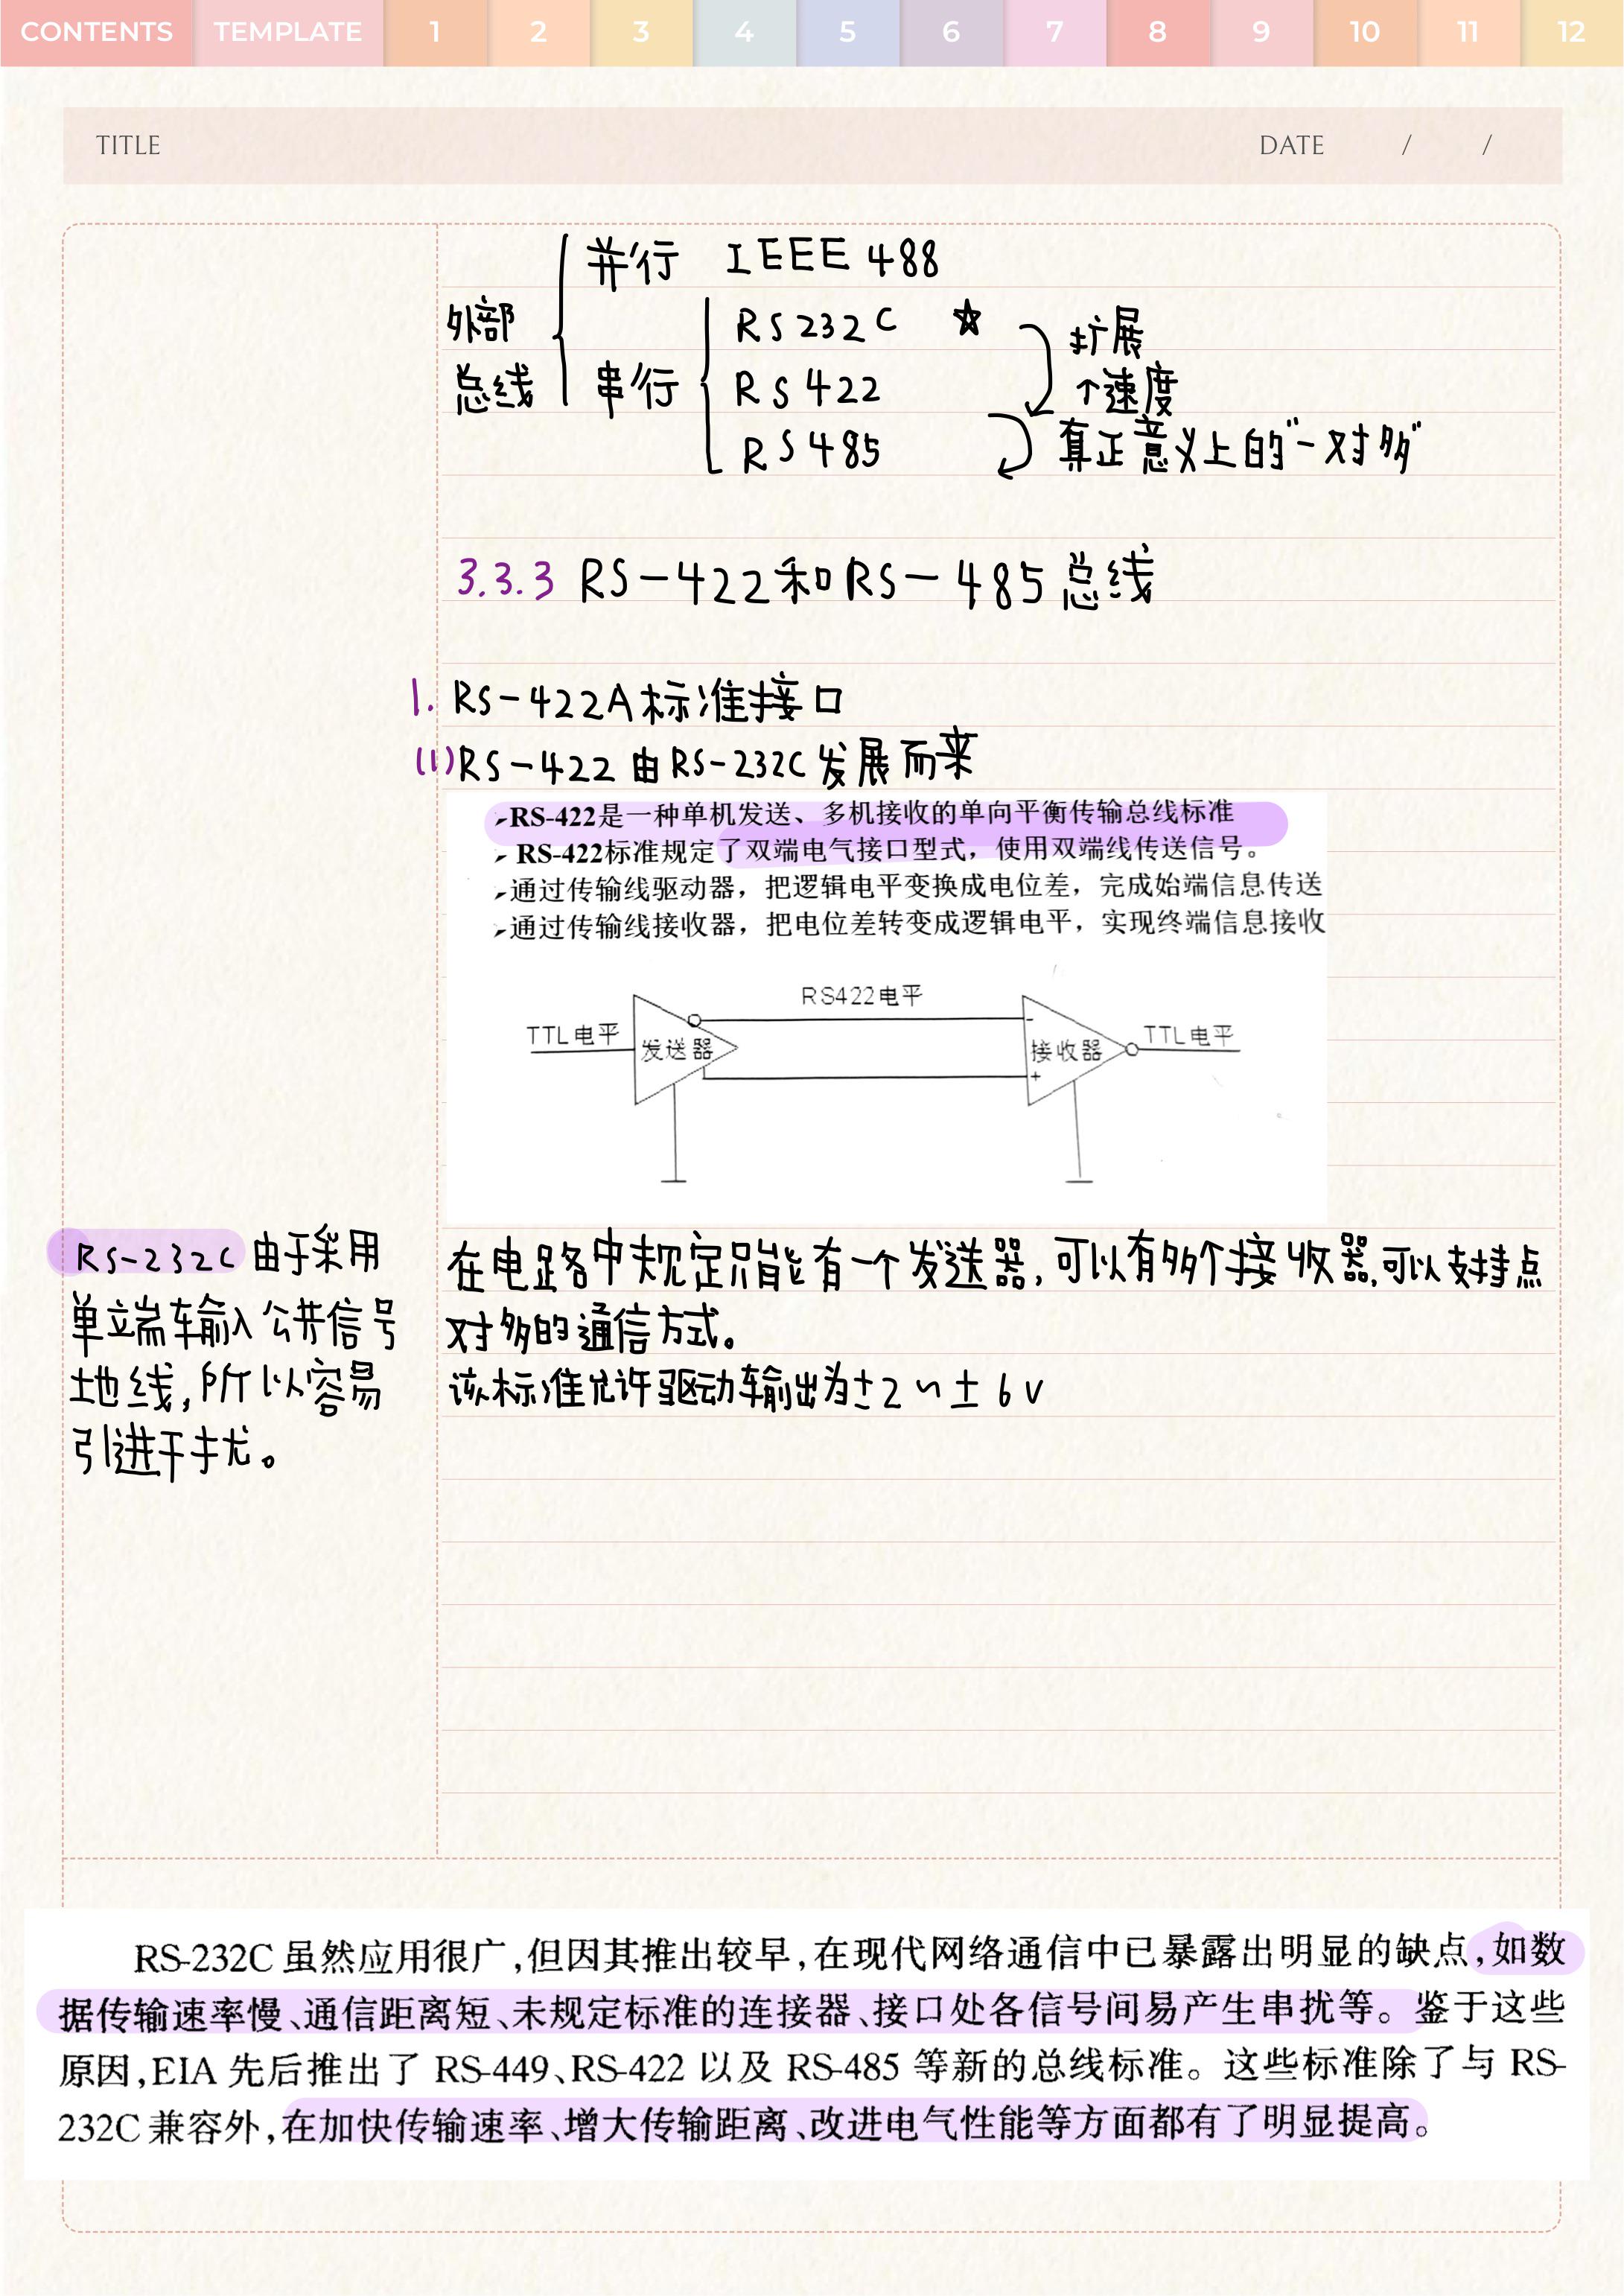 CONTENTS TEMPLATE 1 2 3 4 5 6 7 8 9 10 11 12
TITLE DATE / /
外部
总线
并行 IEEE 488
串行
RS232C ☆
RS422
RS485
扩展
↑速度
真正意义上的"一对多"
3.3.3 RS-422和RS-485总线
1. RS-422A标准接口
(1)RS-422由RS-232C发展而来
➢RS-422是一种单机发送、多机接收的单向平衡传输总线标准
➢ RS-422标准规定了双端电气接口型式，使用双端线传送信号。
➢通过传输线驱动器，把逻辑电平变换成电位差，完成始端信息传送
➢通过传输线接收器，把电位差转变成逻辑电平，实现终端信息接收
RS422电平
TTL电平
发送器
-
+
接收器
TTL电平
RS-232C由于采用
单端输入公共信号
地线,所以容易
引进干扰。
在电路中规定只能有一个发送器,可以有多个接收器,可以支持点
对多的通信方式。
该标准允许驱动输出为±2~±6V
RS-232C虽然应用很广,但因其推出较早,在现代网络通信中已暴露出明显的缺点,如数
据传输速率慢、通信距离短、未规定标准的连接器、接口处各信号间易产生串扰等。鉴于这些
原因,EIA先后推出了RS-449、RS-422以及RS-485等新的总线标准。这些标准除了与RS-
232C兼容外,在加快传输速率、增大传输距离、改进电气性能等方面都有了明显提高。